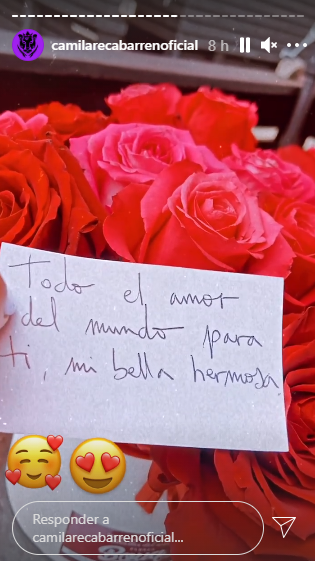 camilarecabarrenoficial 8 h
Todo el amor
del mundo para
ti, mi bella hermosa
Responder a
camilarecabarrenoficial...